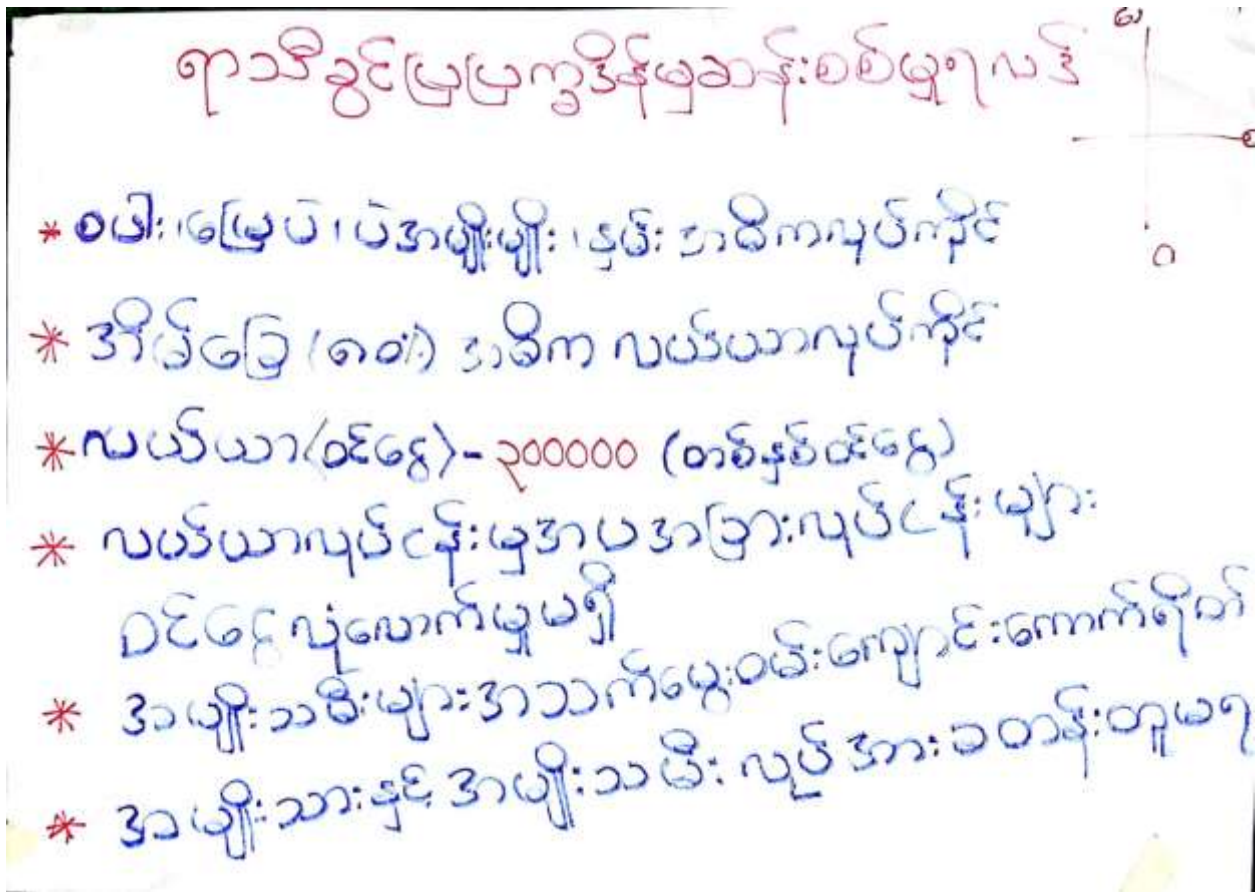 ရာသီခွင်ပြပြက္ခဒိန်မှဆန်းစစ်မှုရလဒ်
* စပါး၊မြေပဲ၊ပဲအမျိုးမျိုး၊နှမ်း အဓိကလုပ်ကိုင်
* အိမ်ခြေ (၈၀%) အဓိက လယ်ယာလုပ်ကိုင်
* လယ်ယာ(ဝင်ငွေ)-၃၀၀၀၀၀ (တစ်နှစ်ဝင်ငွေ)
* လယ်ယာလုပ်ငန်းမှအပအခြားလုပ်ငန်းများ
ဝင်ငွေလုံလောက်မှုမရှိ
* အမျိုးသမီးများအသက်မွေးဝမ်းကျောင်းကောက်ရိတ်
* အမျိုးသားနှင့်အမျိုးသမီး လုပ်အားခတန်းတူမရ